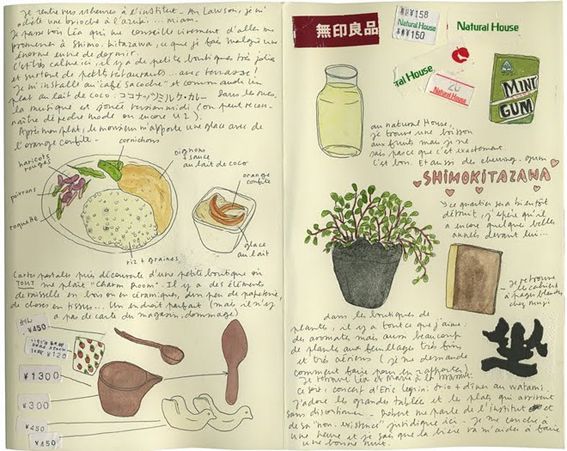 Je rentre vers 17 heures à l'institut. Au Lawson, je m'
achète une brioche à l'azuki... miam.
Je passe voir Léa qui me conseille vivement d'aller me
promener à Shimo-kitazawa, ce que je fais malgré une
énorme envie de dormir.
C'est très calme ici, il y a de petites boutiques très jolies
et surtout de petits restaurants... avec terrasse!
Je m'installe au "café sacoche" et commande un
plat au lait de coco. ココナッツミルクカレー Dans les rues,
la musique est jouée version midi (on peut recon-
naître Depeche Mode ou encore U2).
Après mon plat, le monsieur m'apporte une glace avec de
l'orange confite.
cornichons
haricots
rouges
oignons
+ sauce
au lait de coco
poivrons
roquette
riz + graines
orange
confite
glace
au lait
Cartes postales puis découverte d'une petite boutique où
TOUT me plaît "Charm Room". Il y a des éléments
de vaisselle en bois ou en céramique, un peu de papeterie,
de choses en tissu... Un endroit parfait (mais il n'y
a pas de carte du magasin, dommage)
¥450
¥120
¥1300
¥300
¥450
¥150
無印良品
¥158
¥150
Natural House
Natural House
Natural House
MINT
GUM
au Natural House,
je trouve une boisson
aux fruits mais je ne
sais pas ce que c'est exactement.
C'est bon. Et aussi des chewing-gum
SHIMOKITAZAWA
ce quartier sera bientôt
détruit, j'espère qu'il
a encore quelques belles
années devant lui...
Je retrouve
les cahiers
à pages blanches
chez Muji.
dans les boutiques de
plantes, il y a tout ce que j'aime,
des aromates mais aussi beaucoup
de plantes au feuillage très fin
et très aérien (je me demande
comment faire pour en rapporter)
Je retrouve Léa et Maria à la
concert d'Eric trio + dîner au Watami.
J'adore les grandes tablées et les plats qui arrivent
sans discontinuer - Robert me parle de l'institut et
de sa "non-existence" juridique ici - Je me couche à
une heure et je sais que la bière va m'aider à faire
une bonne nuit.